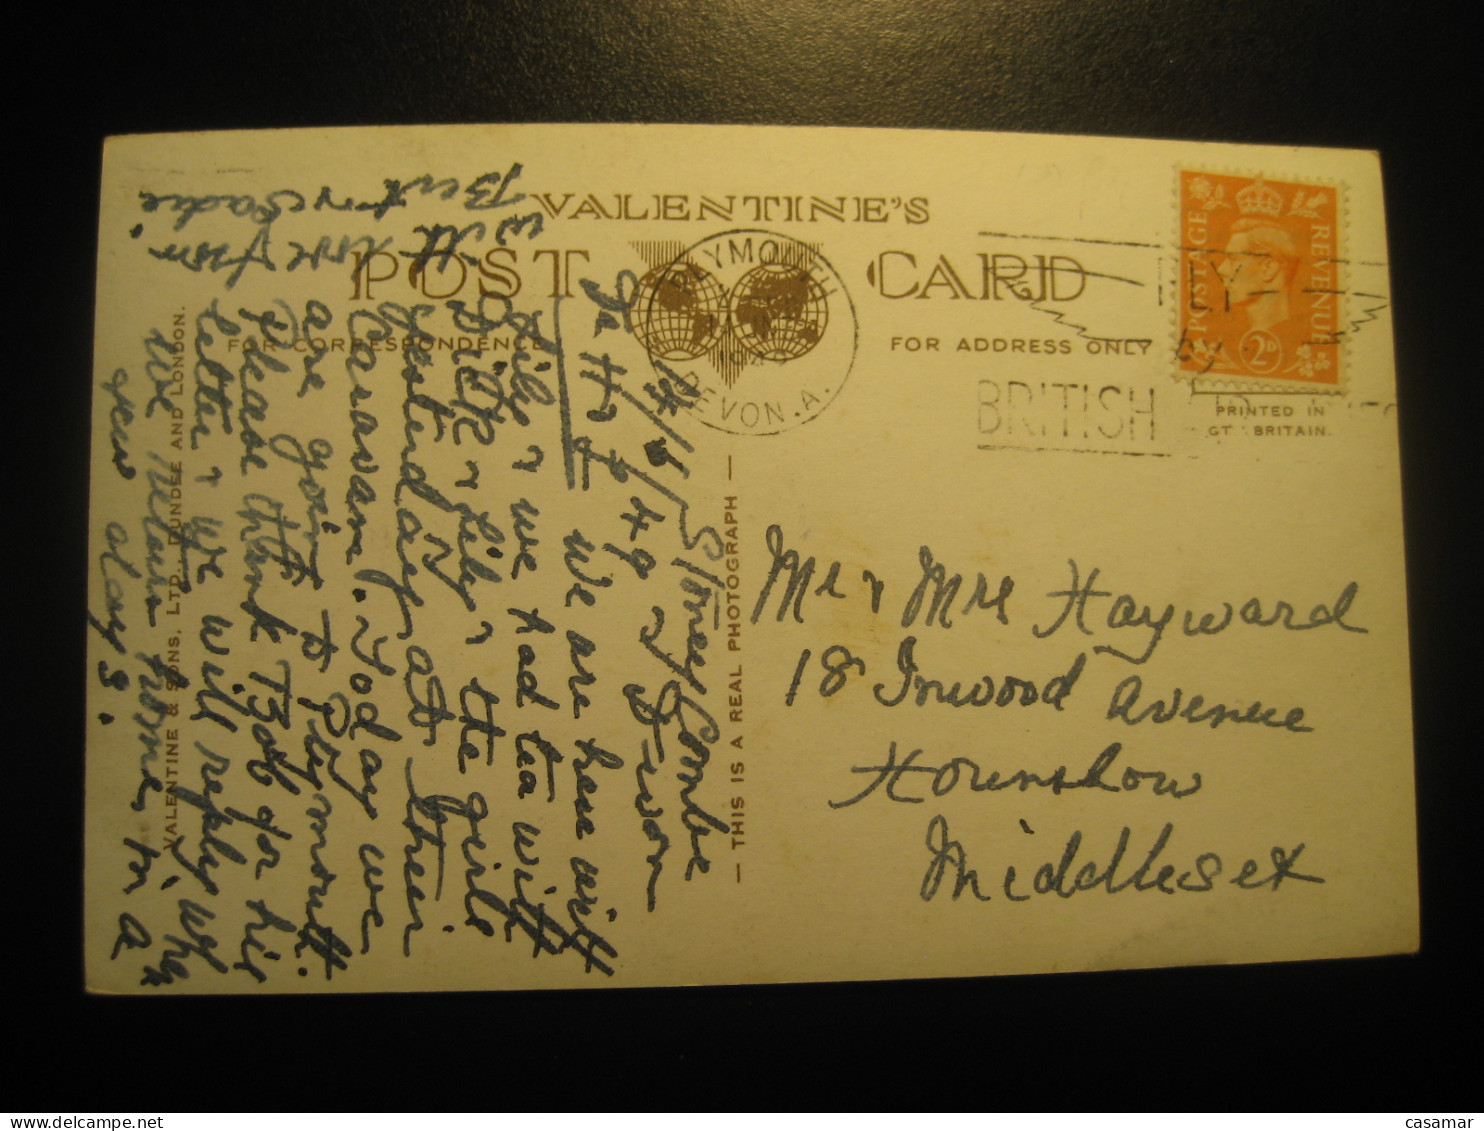 VALENTINE'S
POST CARD
FOR CORRESPONDENCE
FOR ADDRESS ONLY
POSTAGE REVENUE
2D
PLYMOUTH
DEVON. A.
BRITISH
PRINTED IN
GT. BRITAIN.
VALENTINE & SONS, LTD., DUNDEE AND LONDON.
— THIS IS A REAL PHOTOGRAPH —
Mr & Mrs Hayward
18 Inwood Avenue
Hounslow
Middlesex
Devon
14/6/49
We are here with
& we had tea with
& Lily & the girls
yesterday at their
Caravan. Today we
are going to Plymouth.
Please thank Bob for his
letter & we will reply when
we return home, in a
few days.
with love from
Bert & Sadie.